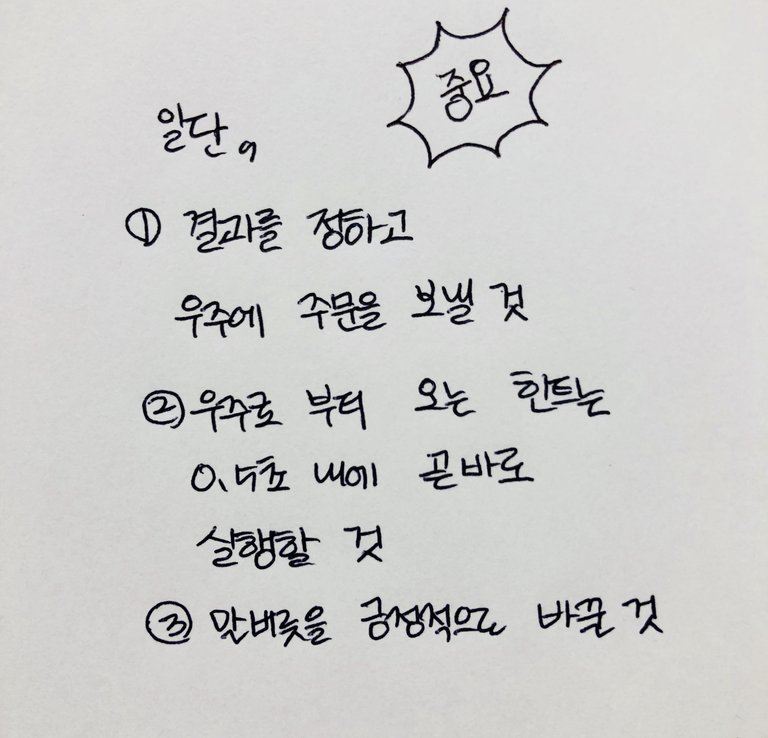 중요
일단,
① 결과를 정하고
우주에 주문을 보낼 것
② 우주로 부터 오는 힌트는
0.5초 내에 곧바로
실행할 것
③ 말버릇을 긍정적으로 바꿀 것